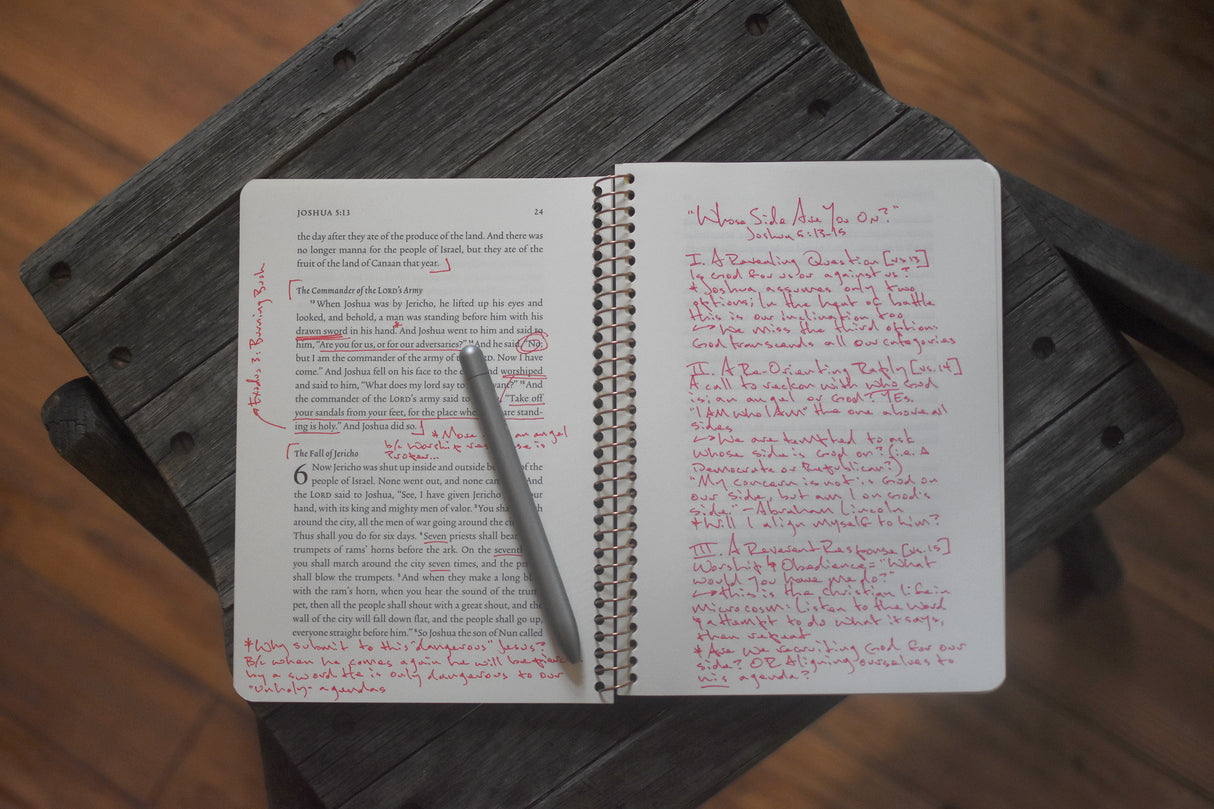 JOSHUA 5:13 24
the day after they ate of the produce of the land. And there was
no longer manna for the people of Israel, but they ate of the
fruit of the land of Canaan that year.
→Exodus 3: Burning Bush
The Commander of the LORD's Army
13 When Joshua was by Jericho, he lifted up his eyes and
looked, and behold, a man was standing before him with his
drawn sword in his hand.* And Joshua went to him and said to
him, "Are you for us, or for our adversaries?" 14 And he said, "No;
but I am the commander of the army of Now I have
come." And Joshua fell on his face to the and worshiped
and said to him, "What does my lord say to 15 And
the commander of the LORD's army said to "Take off
your sandals from your feet, for the place whe are stand-
ing is holy." And Joshua did so.
*More an angel
b/c worship is
proper...
The Fall of Jericho
6 Now Jericho was shut up inside and outside of the
people of Israel. None went out, and none And
the LORD said to Joshua, "See, I have given Jericho our
hand, with its king and mighty men of valor. 3 You sha
around the city, all the men of war going around the ci
Thus shall you do for six days. 4 Seven priests shall bear
trumpets of rams' horns before the ark. On the seventh
you shall march around the city seven times, and the pr
shall blow the trumpets. 5 And when they make a long bl
with the ram's horn, when you hear the sound of the trum
pet, then all the people shall shout with a great shout, and the
wall of the city will fall down flat, and the people shall go up,
everyone straight before him." 6 So Joshua the son of Nun called
*Why submit to this "dangerous" Jesus?
B/c when he comes again he will be
by a sword. He is only dangerous to our
"unholy" agendas
"Whose Side Are You On?"
Joshua 5:13-15
I. A Revealing Question [vs.13]
Is God for us or against us?
*Joshua assumes only two
options; In the heat of battle
this is our inclination too
↳We miss the third option:
God transcends all our categories
II. A Re-Orienting Reply [vs.14]
A call to reckon with who God
is: an angel or God? YES.
"I AM Who I Am" the one above all
sides
↳We are tempted to ask
whose side is God on? (i.e. A
Democrate or Republican?)
"My concern is not is God on
our side, but am I on God's
side." - Abraham Lincoln
*Will I align myself to him?
III. A Reverent Response [vs.15]
Worship & Obedience = "What
would you have me do?"
↳this is the Christian life in
microcosm: listen to the word
& attempt to do what it says,
then repeat
*Are we recruiting God for our
side? OR Aligning ourselves to
his agenda?